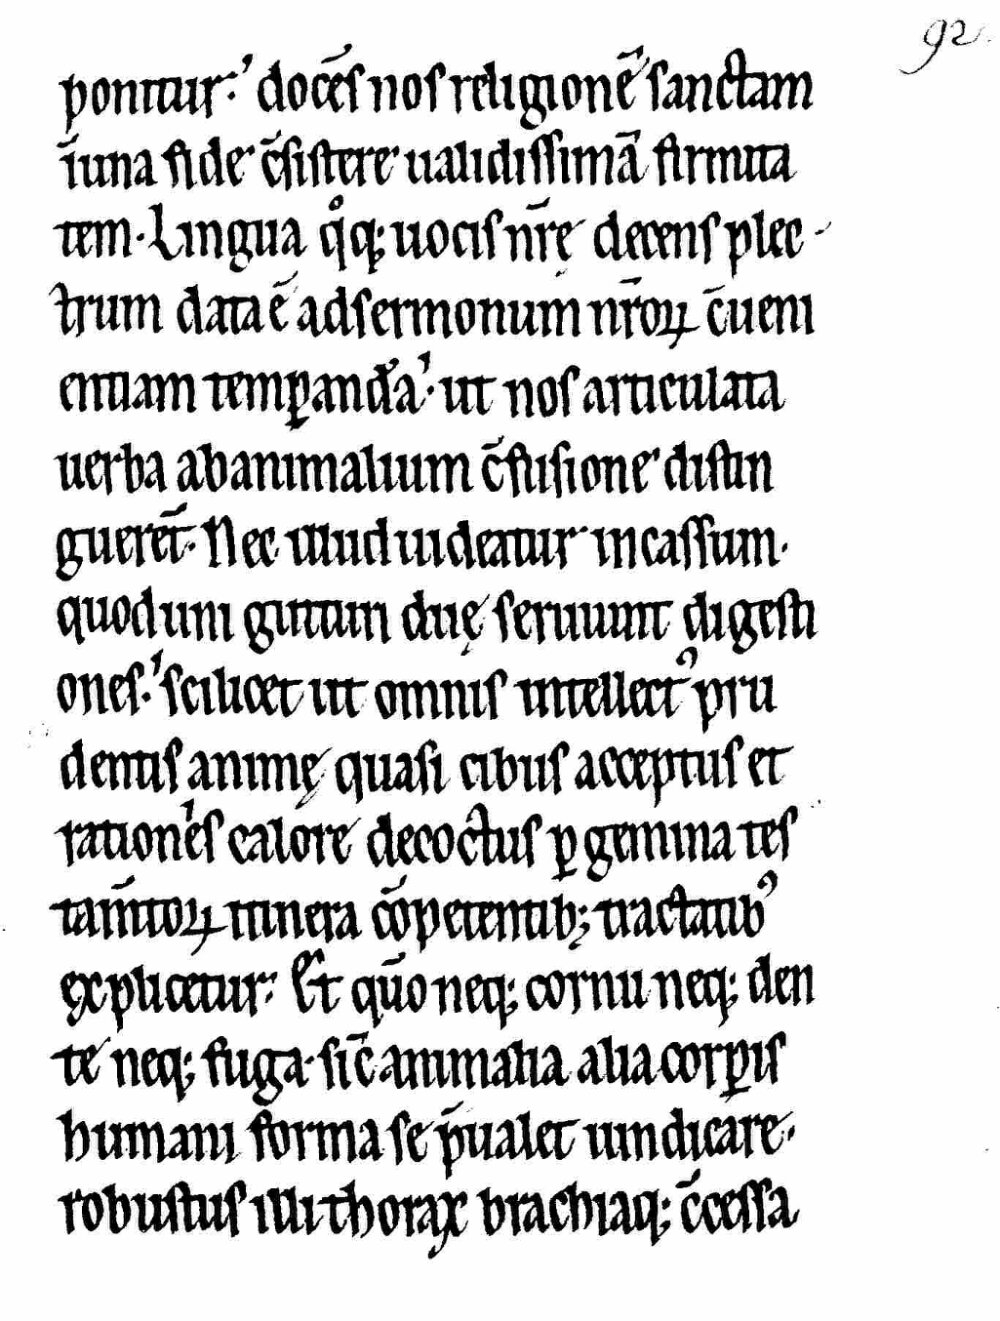 92.
ponitur. docēs nos religionē sanctam
īuna fide c̄sistere ualidissimā firmita
tem. Lingua qͦq; uocis nr̄ę decens plec
trum data ē ad sermonum nr̄oꝝ c̄ueni
entiam temꝑanda. ut nos articulata
uerba ab animalium c̄fusione distin
gueret̄. Nec illud uideatur incassum.
quod uni guttum duę seruiunt digesti
ones. scilicet ut omnis intellectꝰ pru
dentis animę quasi cibus acceptus et
rationes calore decoctus ꝑ gemina tes
tam̄toꝝ itinera cōpetentib; tractatibꝰ
explicetur. Et qūo neq; cornu neq; den
te neq; fuga. sic̄ animalia alia corꝑis
humani forma se p̄ualet uindicare.
robustus illi thorax brachiaq; c̄cessa